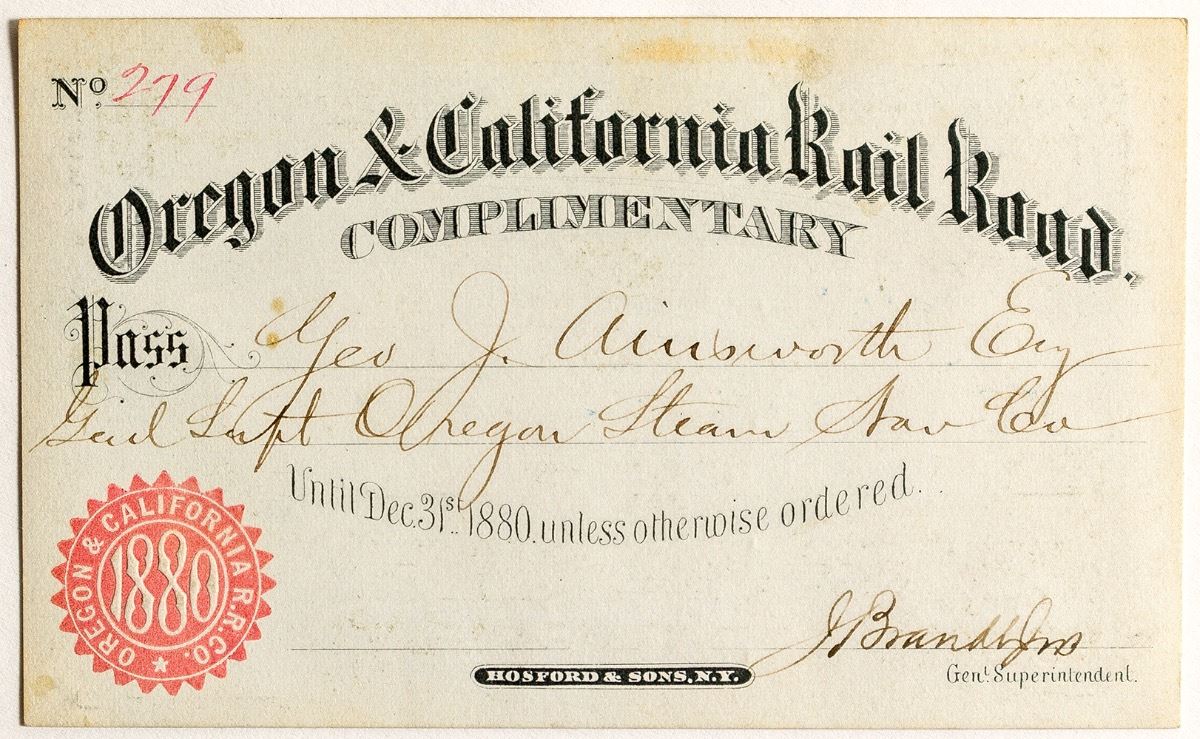 No. 279
Oregon & California Rail Road.
COMPLIMENTARY
Pass Geo J. Ainsworth Esq
Genl Supt Oregon Steam Nav Co
Until Dec. 31st 1880. unless otherwise ordered.
OREGON & CALIFORNIA R.R. CO.
1880
J Brandt Jr
Genl. Superintendent.
HOSFORD & SONS, N.Y.